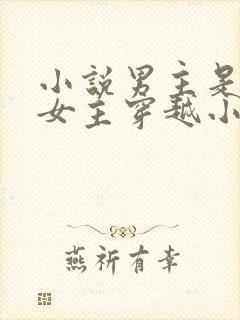 小说男主是
女主穿越小
燕祈有幸